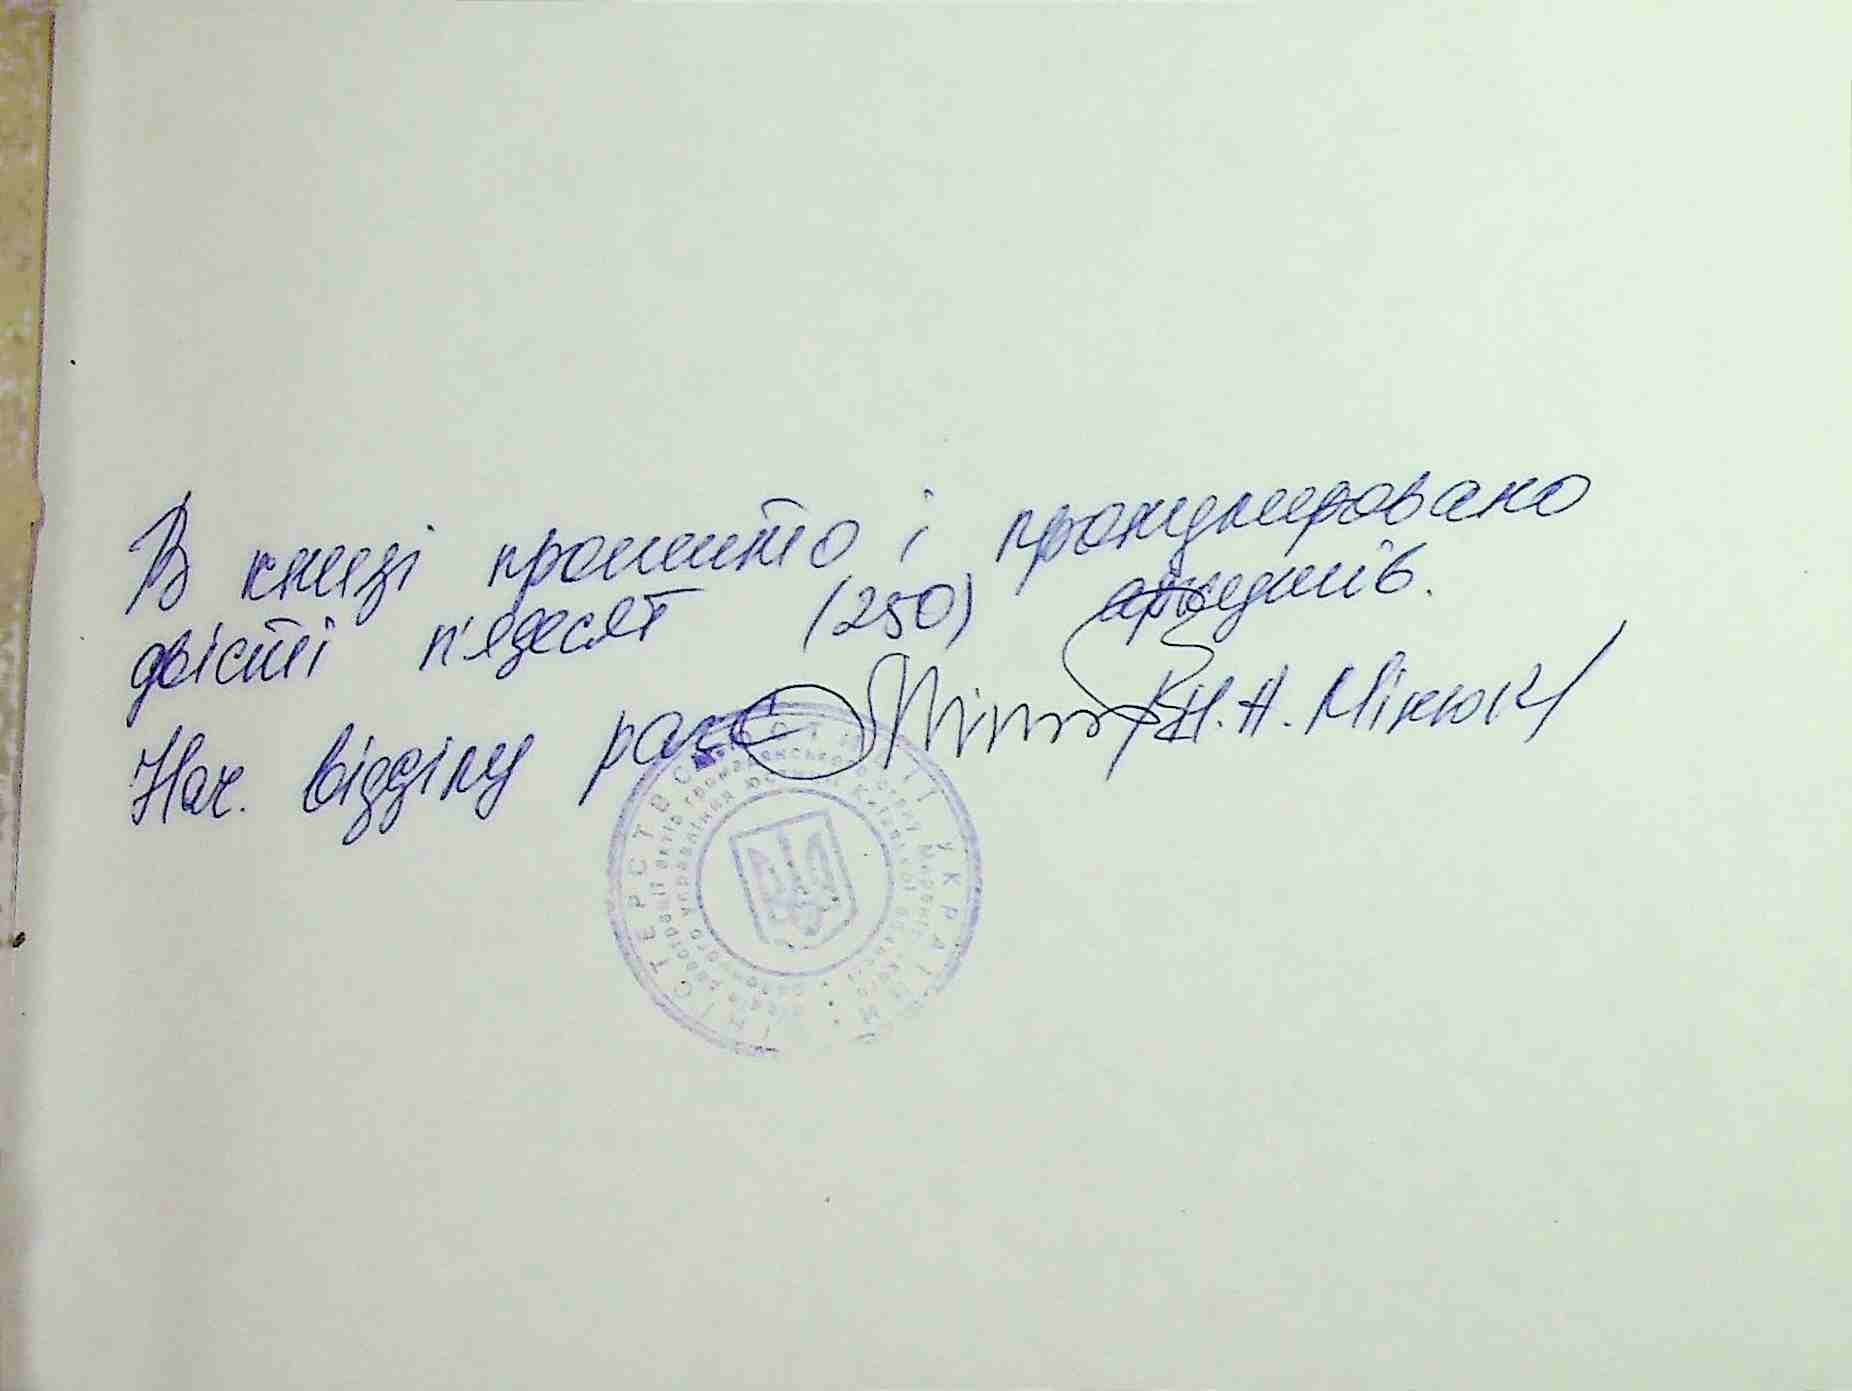 В книзі прошито і пронумеровано
двісті п'ядесят (250) аркушів.
Нач. відділу рагс Н.А. Мінюк
МІНІСТЕРСТВО ЮСТИЦІЇ УКРАЇНИ